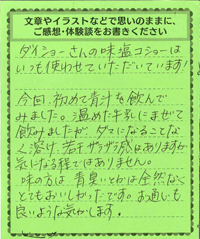 文章やイラストなどで思いのままに、
ご感想・体験談をお書きください
ダイショーさんの味塩コショーは
いつも使わせていただいています!
今回、初めて青汁を飲んで
みました。温めた牛乳にまぜて
飲みましたが、ダマになることな
く溶け、若干ザラザラ感はありますが
気になる程ではありません。
味の方は、青臭いとかは全然なく
とてもおいしかったです。お通じも
良いような気がします。